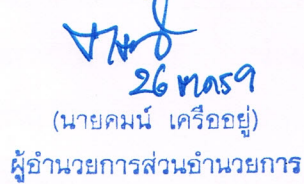 26
(นายคมน์ เครืออยู่)
ผู้อำนวยการส่วนอำนวยการ